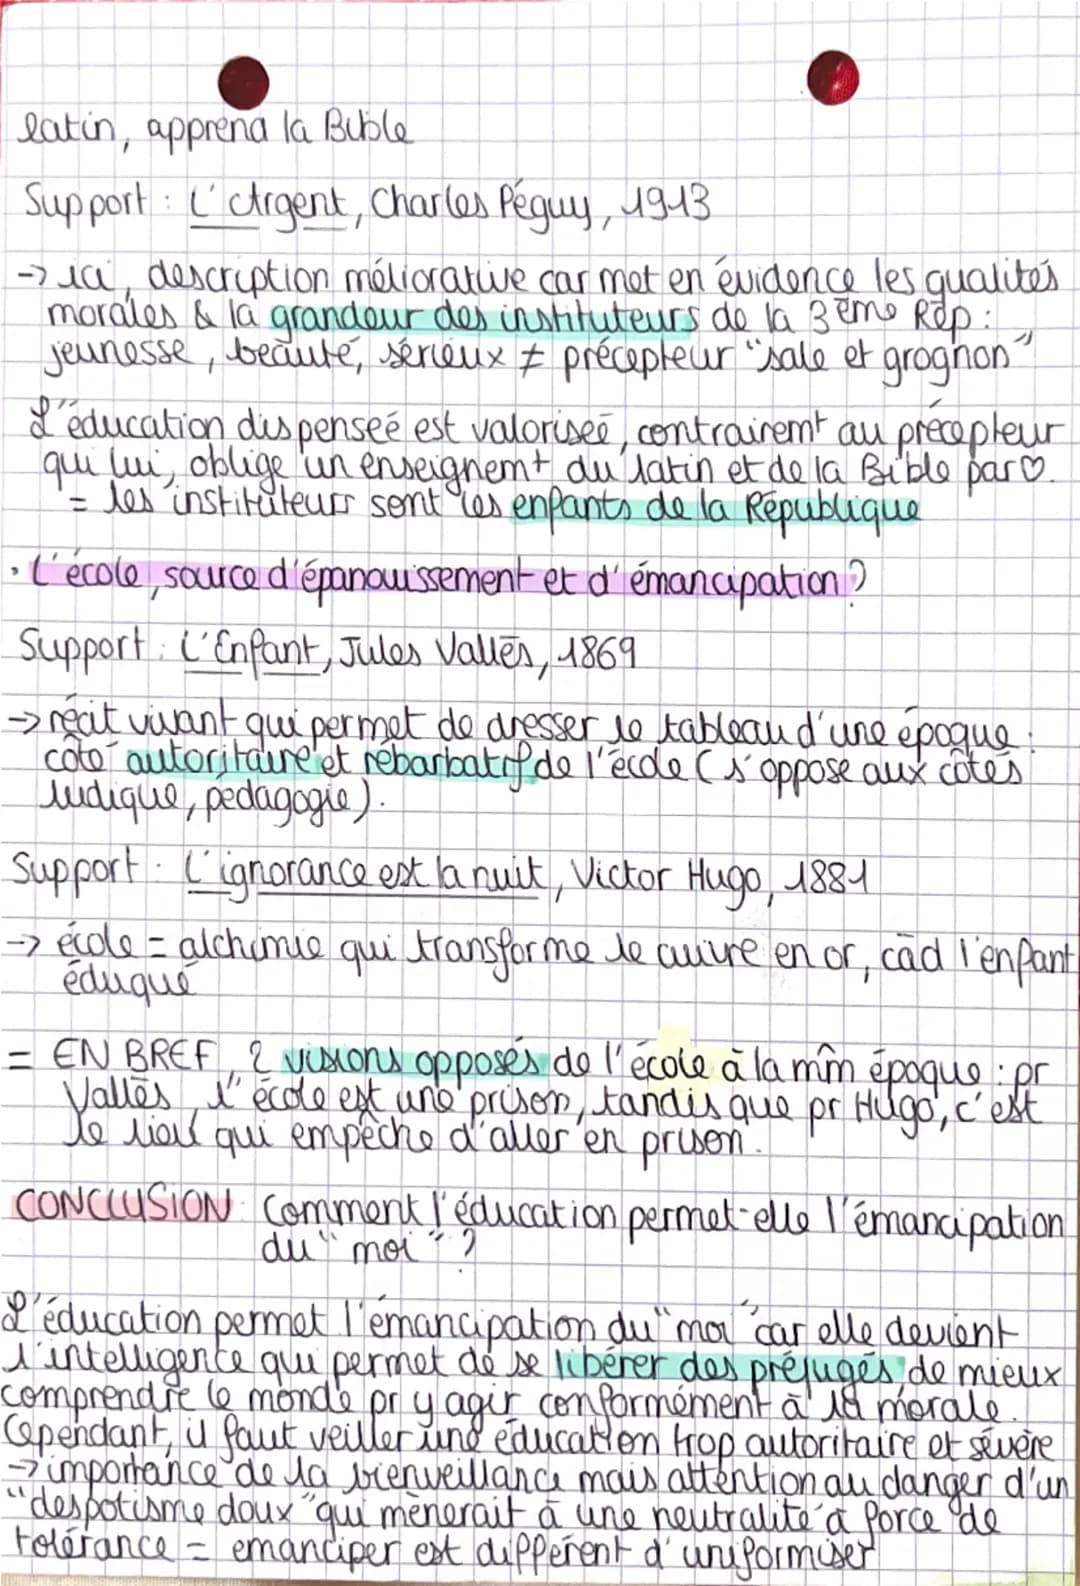 latin, apprend la Bible
Support : L'Argent, Charles Péguy, 1913
-> ici, description méliorative car met en évidence les qualités
morales & la grandeur des instituteurs de la 3ème Rép :
jeunesse, beauté, sérieux ≠ précepteur "sale et grognon"
L'éducation dispensée est valorisée, contrairemt au précepteur
qui lui, oblige un enseignemt du latin et de la Bible par ♡.
= les instituteurs sont les enfants de la République
• L'école, source d'épanouissement et d'émancipation ?
Support : L'Enfant, Jules Vallès, 1869
-> récit vivant qui permet de dresser le tableau d'une époque :
côté autoritaire et rébarbatif de l'école (s'oppose aux côtés
ludique, pédagogie).
Support : L'ignorance est la nuit, Victor Hugo, 1881
-> école = alchimie qui transforme le cuivre en or, càd l'enfant
éduqué
= EN BREF, 2 visions opposés de l'école à la mm époque : pr
Vallès, l'école est une prison, tandis que pr Hugo, c'est
le lieu qui empêche d'aller en prison.
CONCLUSION : Comment l'éducation permet-elle l'émancipation
du "moi" ?
L'éducation permet l'émancipation du "moi" car elle devient
l'intelligence qui permet de se libérer des préjugés de mieux
comprendre le monde pr y agir conformément à la morale.
Cependant, il faut veiller une éducation trop autoritaire et sévère
-> importance de la bienveillance mais attention au danger d'un
"despotisme doux" qui mènerait à une neutralité à force de
tolérance = emanciper est différent d'uniformiser